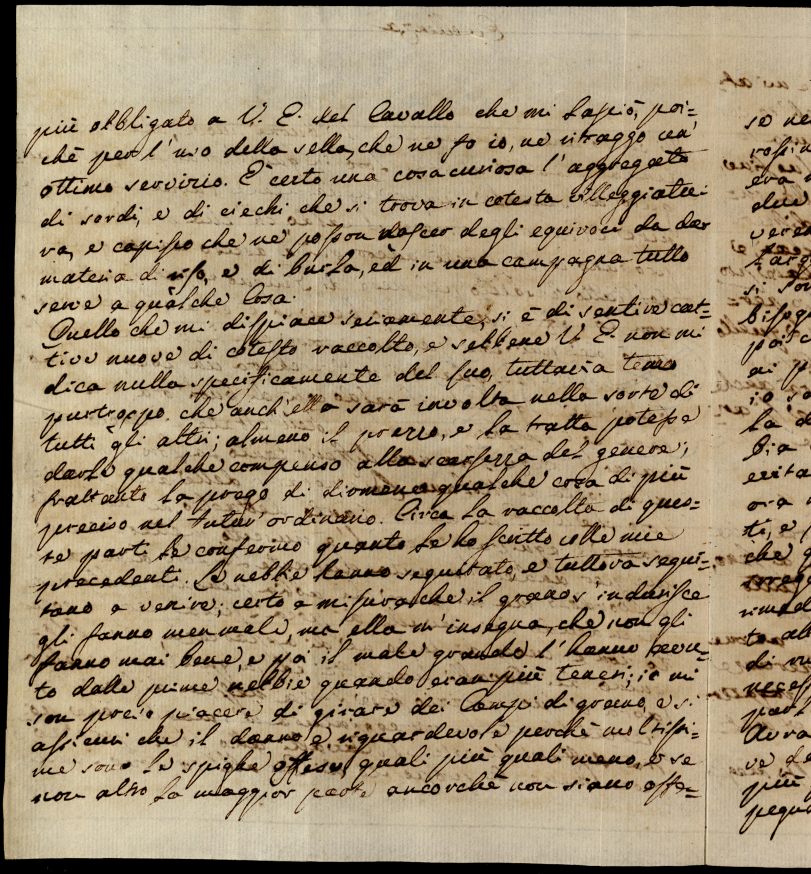 più obbligato a V. E. del Cavallo che mi lasciò, poi=
chè per l'uso della sella, che ne fo io, ne ritraggo un'
ottimo servizio. È certo una cosa curiosa l'aggregato
di sordi, e di ciechi che si trova in cotesta villeggiatu=
ra, e capisco che ne posson nascer degli equivoci da dar
materia di riso, e di burla, ed in una campagna tutto
serve a qualche cosa.
Quello che mi dispiace seriamente, si è di sentire cat=
tive nuove di cotesto raccolto, e sebbene V. E. non mi
dica nulla specificamente del suo, tuttavia temo
purtroppo che anch'ella sarà involta nella sorte di
tutti gli altri; almeno il prezzo, e la tratta potesse
darle qualche compenso alla scarsezza del genere;
frattanto la prego di dirmene qualche cosa di più
preciso nel futur' ordinario. Circa la raccolta di ques=
te parti le confermo quanto le ho scritto colle mie
precedenti. Le nebbie hanno seguitato, e tuttora segui=
tano a venire; certo a misura che il grano s'indurisce
gli fanno men male, ma ella m'insegna, che non gli
fanno mai bene, e poi il male grande l'hanno avu=
to dalle prime nebbie quando eran più teneri; io mi
son preso piacere di girare dei Campi di grano, e si
assicuri che il danno è riguardevole perchè moltissi=
me sono le spighe offese, quali più quali meno, e se
non altro la maggior parte ancorchè non siano offe=